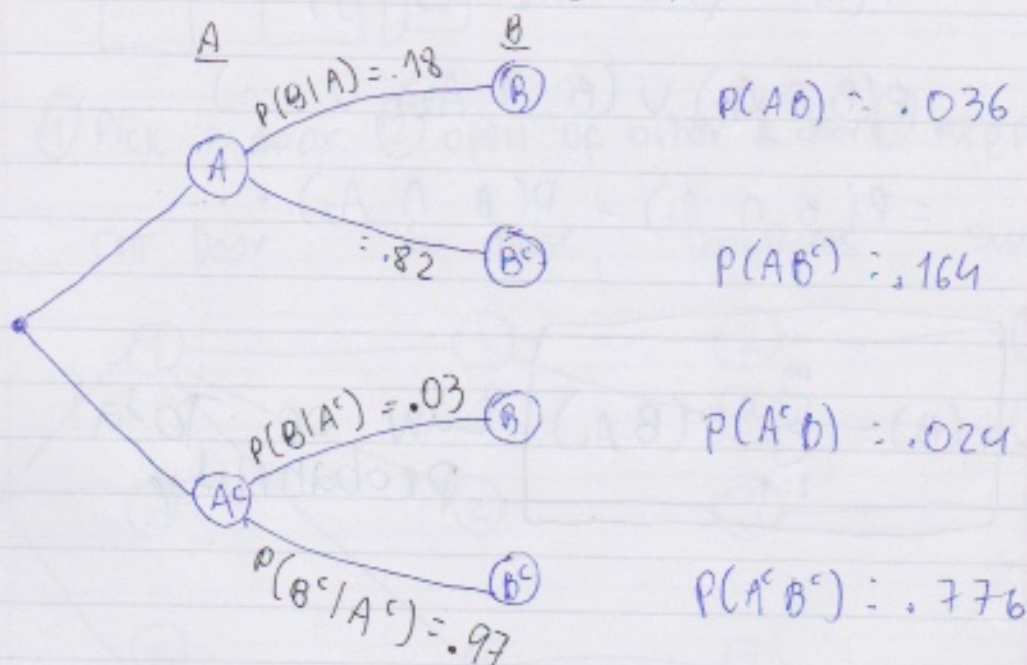 A B
P(B|A) = .18
B
P(AB) = .036
A
= .82
Bᶜ
P(ABᶜ) = .164
P(B|Aᶜ) = .03
B
P(AᶜB) = .024
Aᶜ
P(Bᶜ/Aᶜ) = .97
Bᶜ
P(AᶜBᶜ) = .776